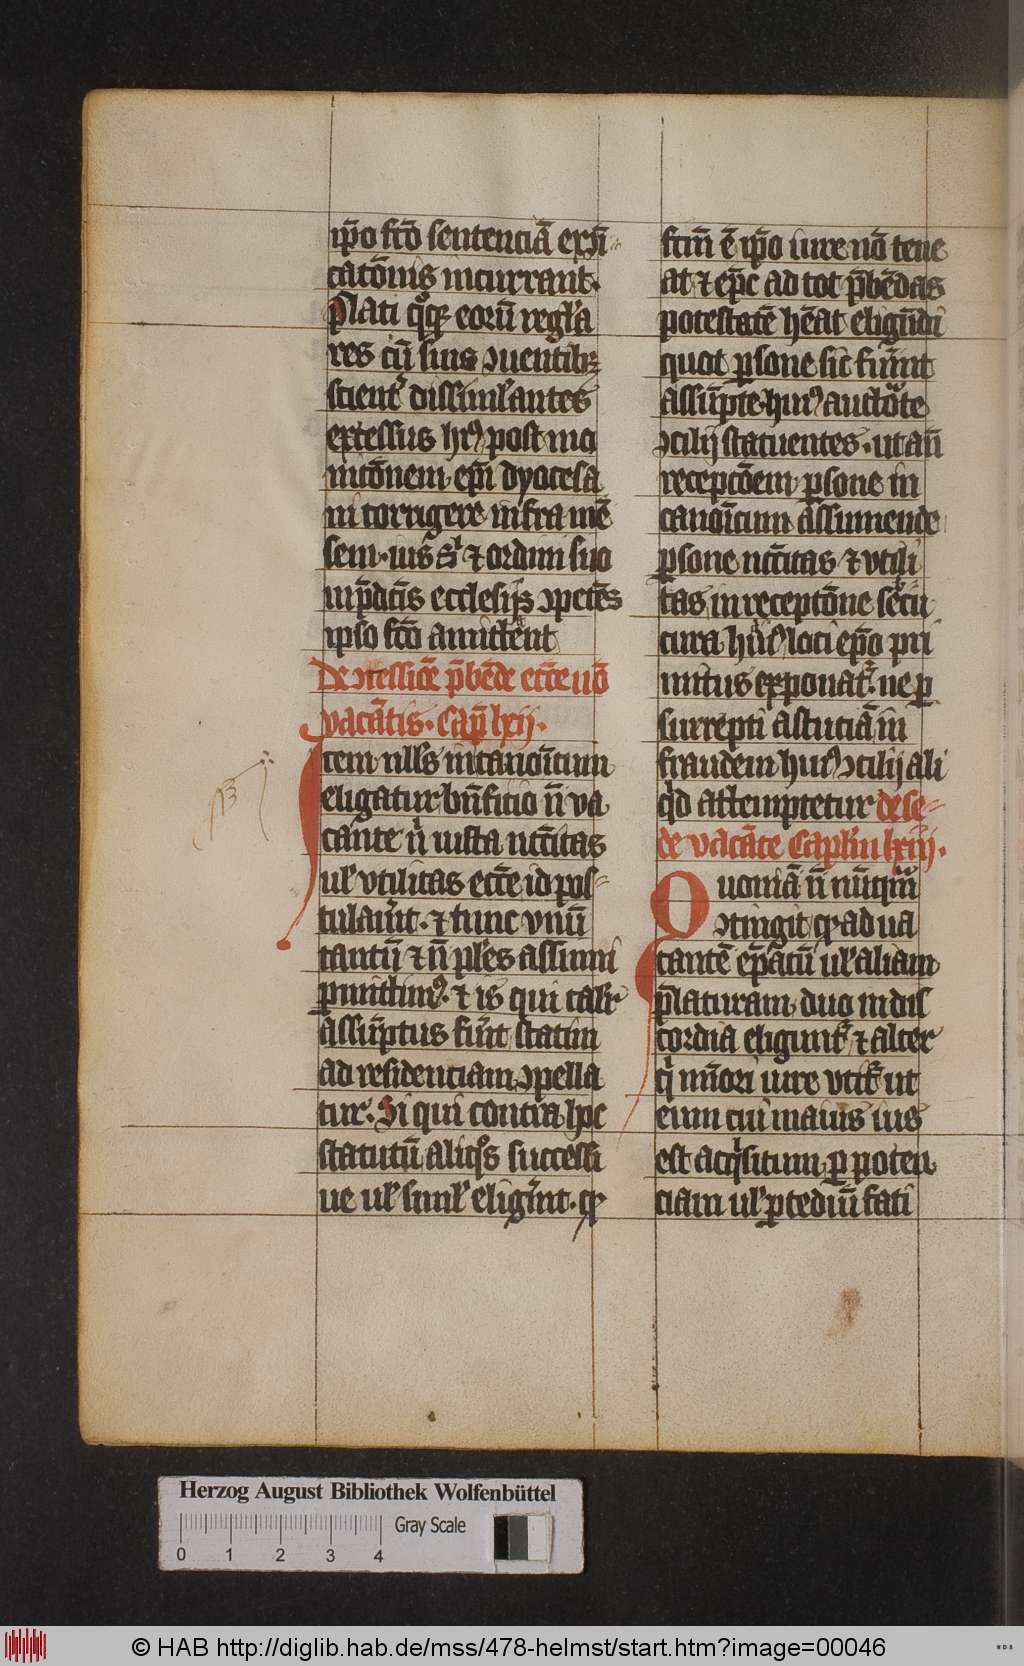 ip̄o fc̄o sentenciā exc̄ī⸗
catōnis incurrant.
p̄lati qͦqꝫ eorū regl'a
res cū suis ꝯuentibꝫ
scient̉ dissiml'antes
excessus hꝰ post mo
nitōnem ep̄i dyocesa
ni corrigere infra mē
sem. ius & ordini suo
in p̄dc̄is ecclesijs ꝯpetēs
ipso fc̄o amittent
De ꝯcessiōe p̄bēde ecc̄e nō
vacātis. Cap̄ lxij.
Item nll's in canoīcum
eligatur bn̄ficio n̄ va
cante nͥ iusta ncc̄itas
ul' vtilitas ecc̄e id pos⸗
tulau̓it. & tunc vnū
tantū & n̄ pl'es assumi
p̱mittimꝰ. & is qui talit̓
assūptus fu̓it statim
ad residenciam ꝯpella
tur. Si qui contra hoc
statutū aliqͦs successi
ue ul' siml' elig̓int. qꝫ
fcm̄ ē ip̄o iure nō tene
at & ep̄c ad tot p̄bēdas
potestatē hēat eligēdi
quot p̱sone sic fu̓int
assūpte. huiꝰ auctoͬte
ꝯcilij statuentes. ut an̄
receptōem p̱sone in
canoīcum assumende
p̱sone ncc̄itas & vtili
tas in receptōne
cura huiꝰ loci ep̄o pri
mitus exponat̉. ne p̱
surrepti astuciā in
fraudem huiꝰ ꝯcilij ali
qͥd attemptetur de se⸗
de vacāte Capl'm lxiij.
Quoniā n̄ nūqͣm
ꝯtingit qꝫ ad ua
cantē ep̄atū ul' aliam
p̄laturam duo in dis
cordia eligunt̉ & alter
qͥ mīori iure vtit̉ ut
eum cui maius ius
est acqͥsitum p̱ poten
ciam ul' p̱ tediū fati
13
Herzog August Bibliothek Wolfenbüttel
Gray Scale
0 1 2 3 4
© HAB http://diglib.hab.de/mss/478-helmst/start.htm?image=00046